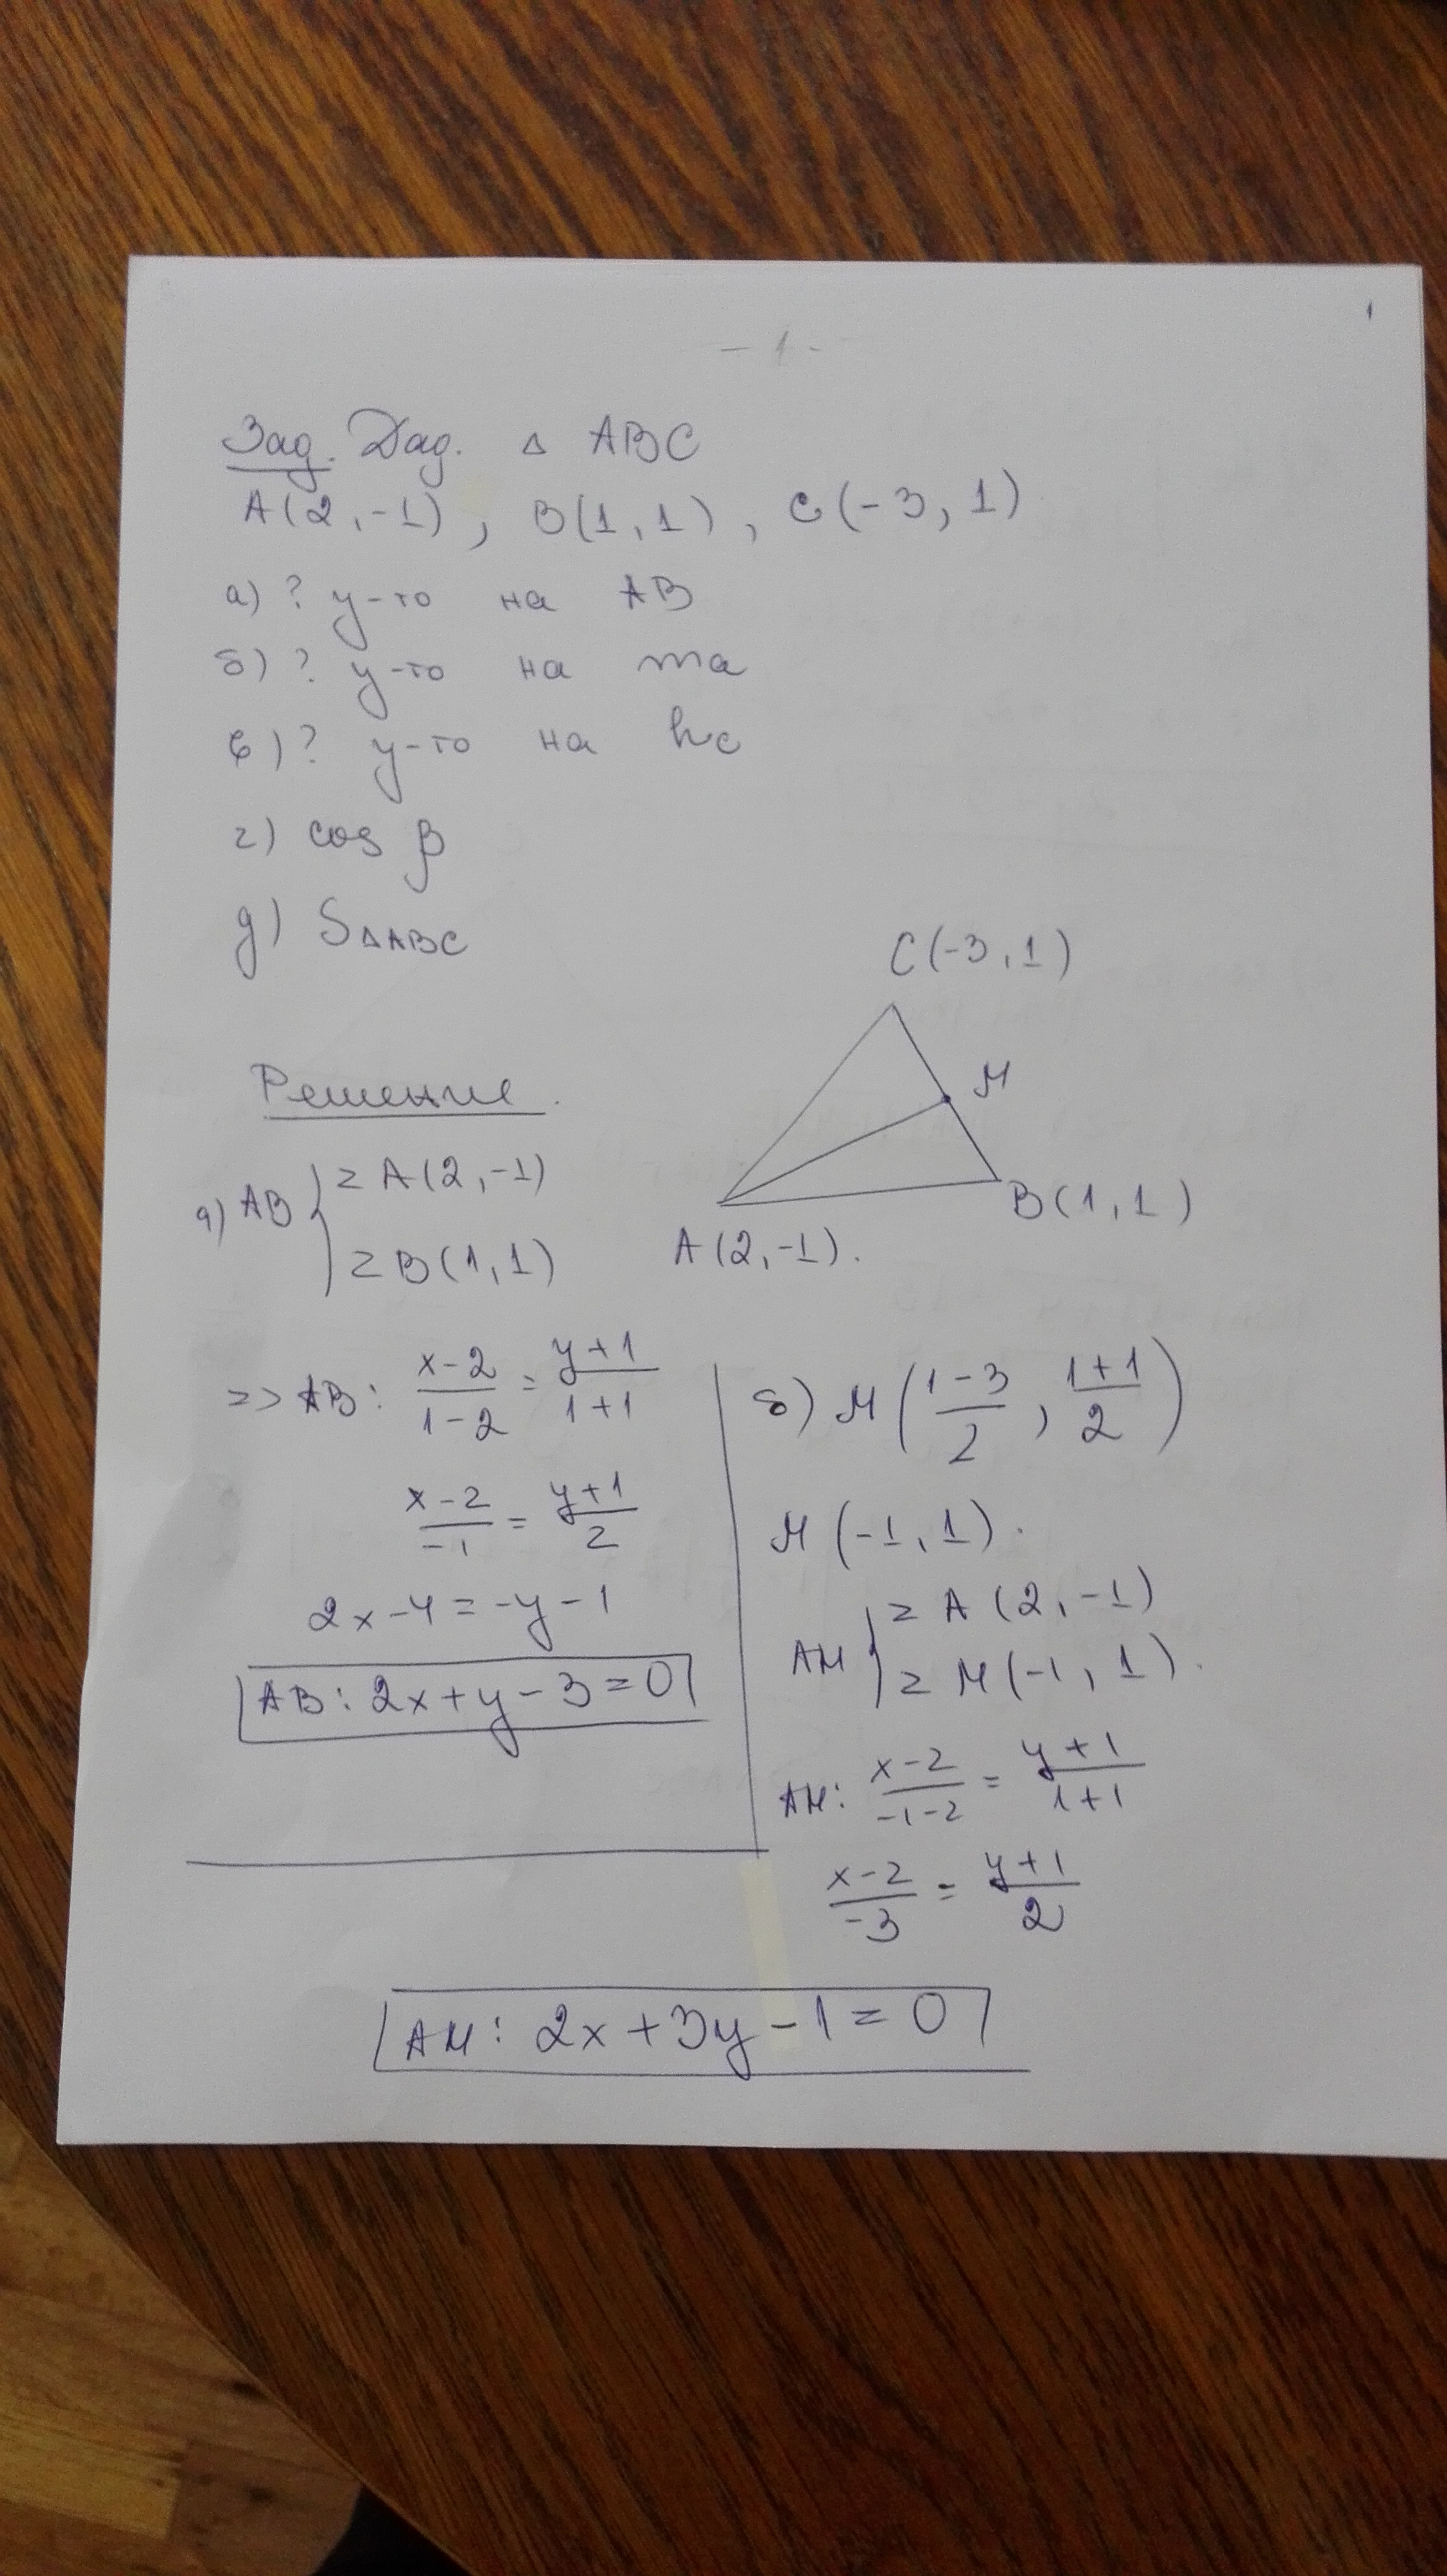 1
- 1 -
Зад. Дад. Δ ABC
A(2,-1), B(1,1), C(-3,1)
а) ? у-то на AB
б) ? у-то на ma
в) ? у-то на hc
г) cos β
д) S△ABC
C(-3,1)
M
B(1,1)
A(2,-1).
Решение.
а) AB } z A(2,-1)
z B(1,1)
=> AB: (x-2)/(1-2) = (y+1)/(1+1)
(x-2)/(-1) = (y+1)/2
2x-4=-y-1
AB: 2x+y-3=0
б) M((1-3)/2, (1+1)/2)
M(-1,1).
AM } z A(2,-1)
z M(-1,1).
AM: (x-2)/(-1-2) = (y+1)/(1+1)
(x-2)/(-3) = (y+1)/2
AM: 2x+3y-1=0